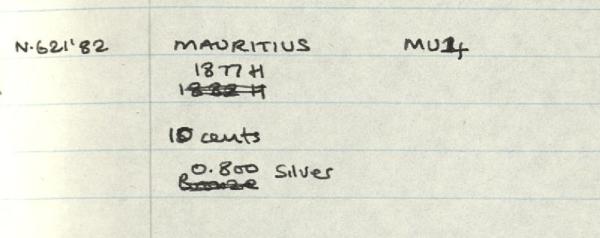 N.621'82 MAURITIUS MU14
1877 H
1882 H
10 cents
0.800 Silver
Bronze